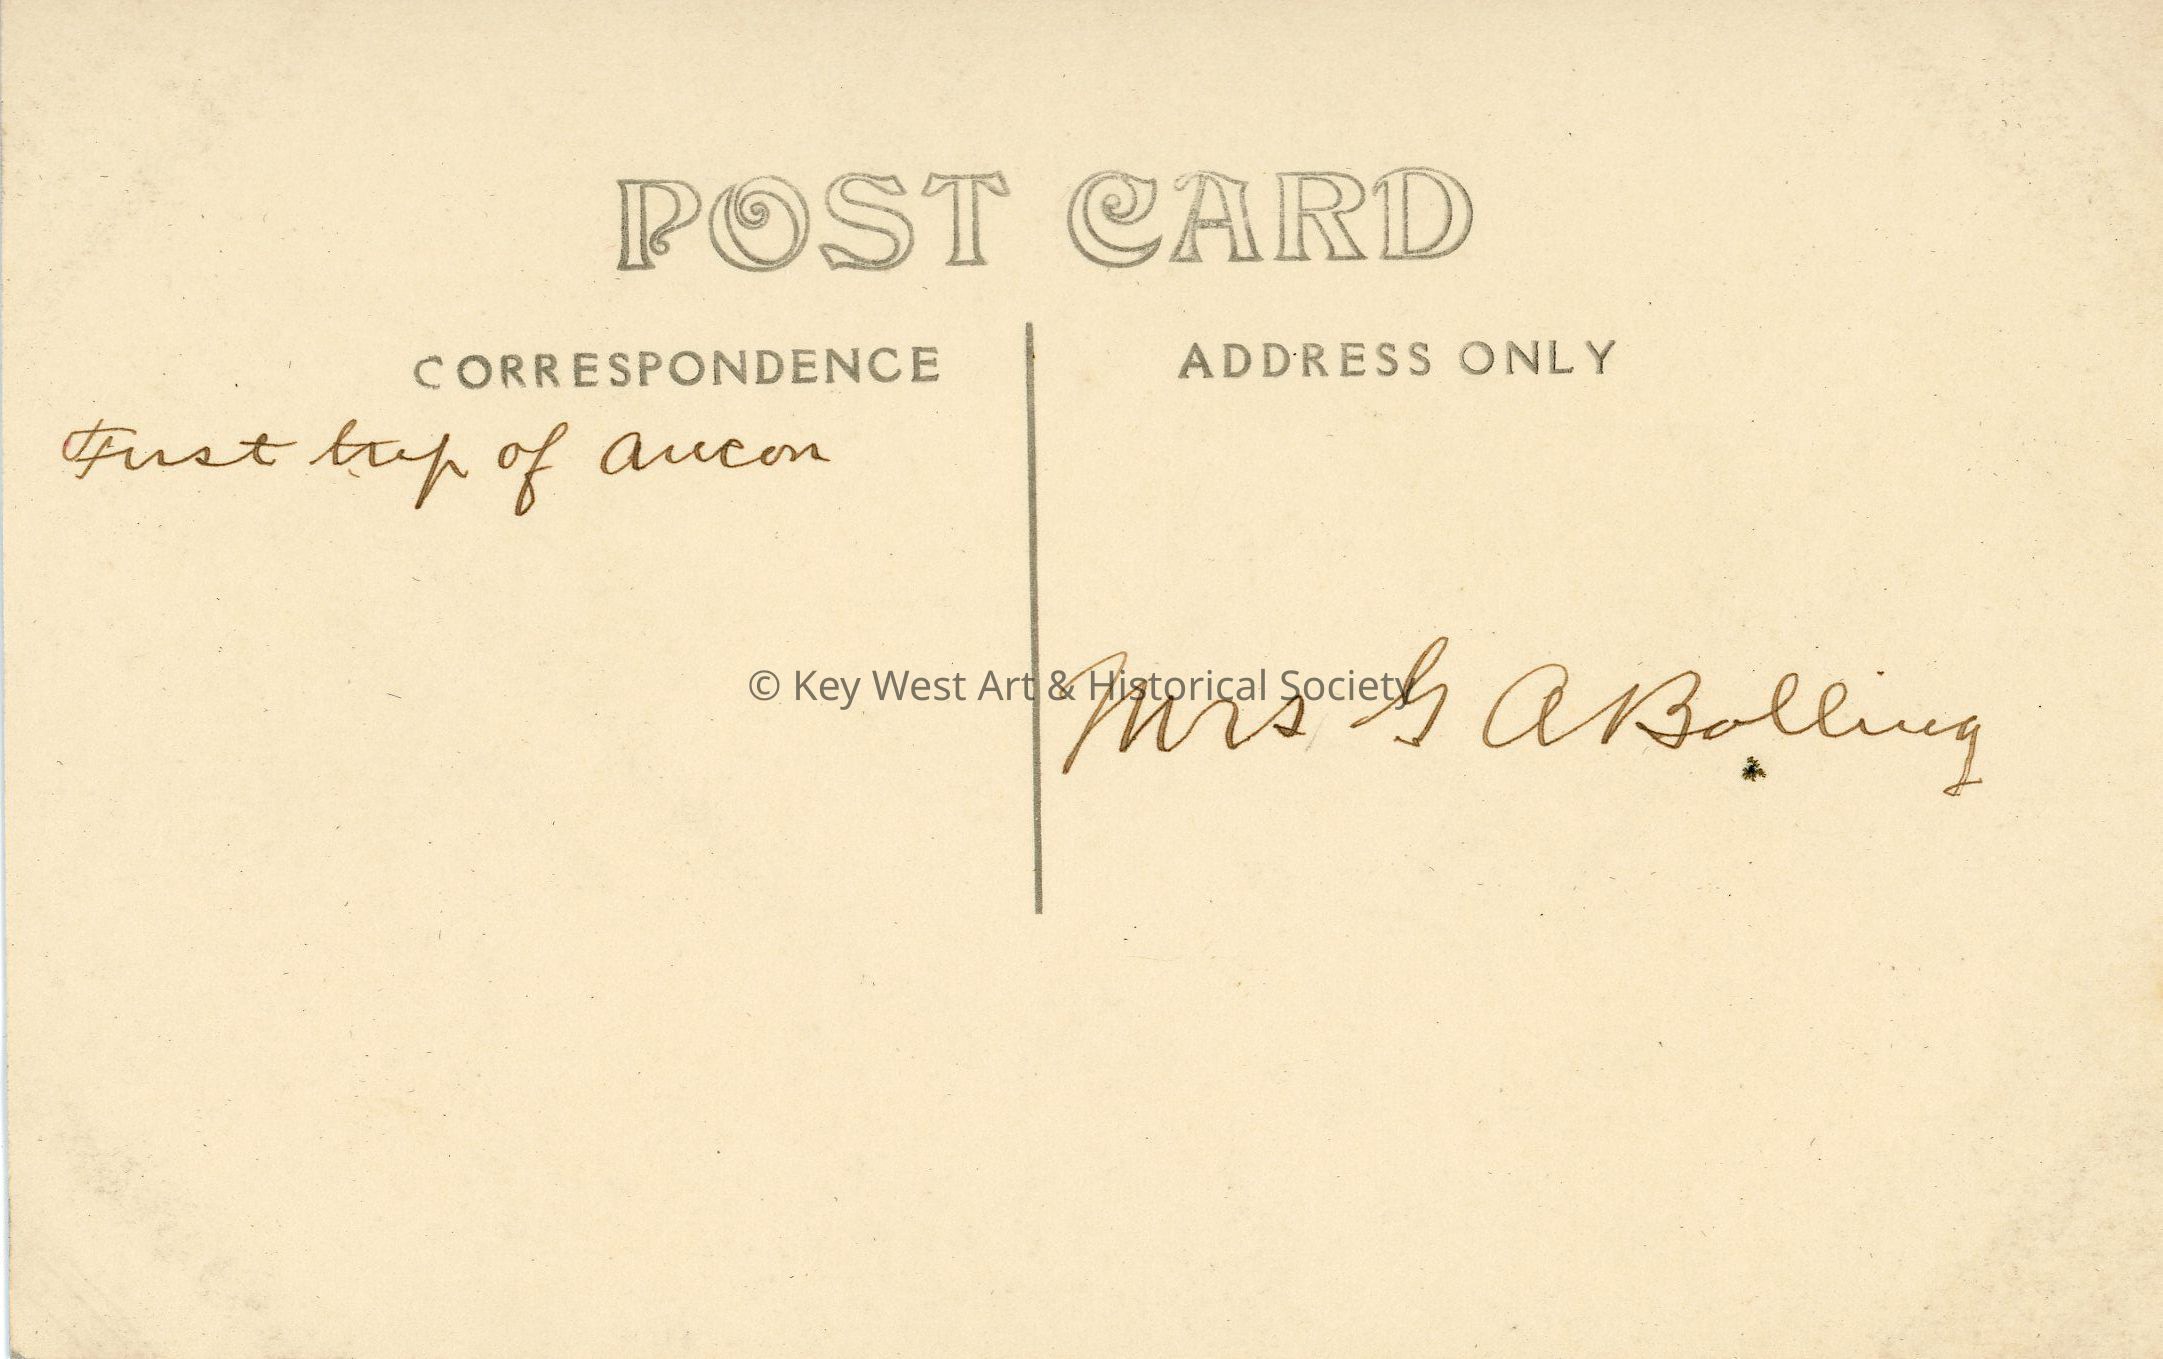 POST CARD
CORRESPONDENCE
ADDRESS ONLY
First trip of Ancon
© Key West Art & Historical Society
Mrs G A Bolling